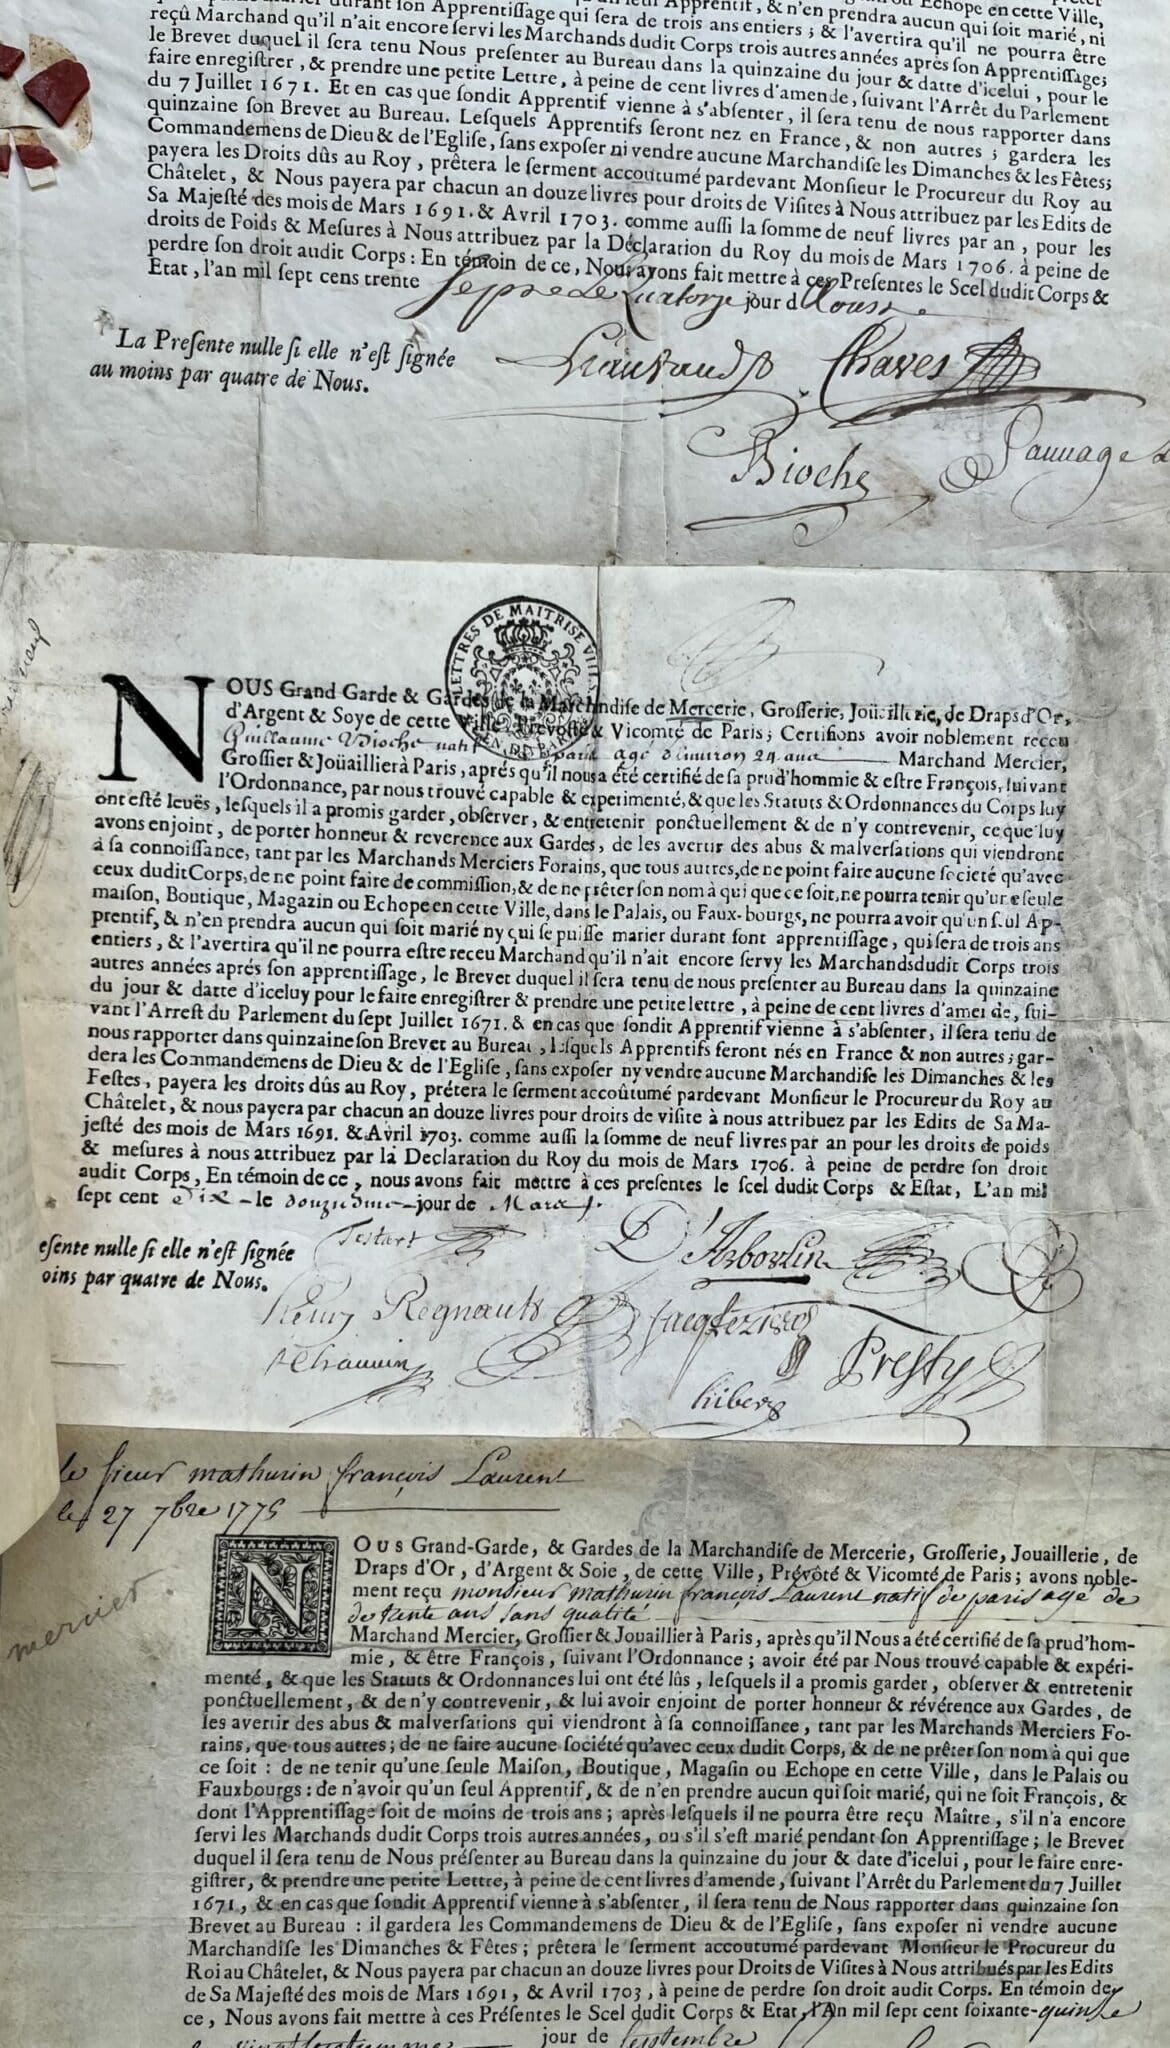 durant son Apprentissage qui sera de trois ans entiers ; & n'en prendra aucun qui soit marié, ni
reçû Marchand qu'il n'ait encore servi les Marchands dudit Corps trois autres années après son Apprentissage ;
le Brevet duquel il sera tenu Nous presenter au Bureau dans la quinzaine du jour & datte d'icelui, pour le
faire enregistrer, & prendre une petite Lettre, à peine de cent livres d'amende, suivant l'Arrêt du Parlement
du 7 Juillet 1671. Et en cas que sondit Apprentif vienne à s'absenter, il sera tenu de nous rapporter dans
quinzaine son Brevet au Bureau. Lesquels Apprentifs seront nez en France, & non autres ; gardera les
Commandemens de Dieu & de l'Eglise, sans exposer ni vendre aucune Marchandise les Dimanches & les Fêtes ;
payera les Droits dûs au Roy, prêtera le serment accoutumé pardevant Monsieur le Procureur du Roy au
Châtelet, & Nous payera par chacun an douze livres pour droits de Visites à Nous attribuez par les Edits de
Sa Majesté des mois de Mars 1691. & Avril 1703. comme aussi la somme de neuf livres par an, pour les
droits de Poids & Mesures à Nous attribuez par la Déclaration du Roy du mois de Mars 1706. à peine de
perdre son droit audit Corps : En témoin de ce, Nous ayons fait mettre à ces Presentes le Scel dudit Corps &
Etat, l'an mil sept cens trente sept le Quatorze jour d'Aoust
La Presente nulle si elle n'est signée
au moins par quatre de Nous.
Chaves
Bioche
Sauvage
LETTRES DE MAITRISE VILLES
GEN. DE PARIS
NOUS Grand Garde & Gardes de la Marchandise de Mercerie, Grosserie, Joüaillerie, de Draps d'Or,
d'Argent & Soye de cette Ville Prevosté & Vicomté de Paris ; Certifions avoir noblement receu
Guillaume Bioche natif de paris agé d'environ 24 ans Marchand Mercier,
Grossier & Joüaillier à Paris, aprés qu'il nous a été certifié de sa prud'hommie & estre François, suivant
l'Ordonnance, par nous trouvé capable & experimenté, & que les Statuts & Ordonnances du Corps luy
ont esté leuës, lesquels il a promis garder, observer, & entretenir ponctuellement & de n'y contrevenir, ce que luy
avons enjoint, de porter honneur & reverence aux Gardes, de les avertir des abus & malversations qui viendront
à sa connoissance, tant par les Marchands Merciers Forains, que tous autres, de ne point faire aucune societé qu'avec
ceux dudit Corps, de ne point faire de commission, & de ne prêter son nom à qui que ce soit, ne pourra tenir qu'une seule
maison, Boutique, Magazin ou Echope en cette Ville, dans le Palais, ou Faux-bourgs, ne pourra avoir qu'un seul Ap-
prentif, & n'en prendra aucun qui soit marié ny qui se puisse marier durant sont apprentissage, qui sera de trois ans
entiers, & l'avertira qu'il ne pourra estre receu Marchand qu'il n'ait encore servy les Marchands dudit Corps trois
autres années aprés son apprentissage, le Brevet duquel il sera tenu de nous presenter au Bureau dans la quinzaine
du jour & datte d'iceluy pour le faire enregistrer & prendre une petite lettre, à peine de cent livres d'amende, sui-
vant l'Arrest du Parlement du sept Juillet 1671. & en cas que sondit Apprentif vienne à s'absenter, il sera tenu de
nous rapporter dans quinzaine son Brevet au Bureau, lesquels Apprentifs seront nés en France & non autres ; gar-
dera les Commandemens de Dieu & de l'Eglise, sans exposer ny vendre aucune Marchandise les Dimanches & les
Festes, payera les droits dûs au Roy, prétera le serment accoûtumé pardevant Monsieur le Procureur du Roy au
Châtelet, & nous payera par chacun an douze livres pour droits de visite à nous attribuez par les Edits de Sa Ma-
jesté des mois de Mars 1691. & Avril 1703. comme aussi la somme de neuf livres par an pour les droits de poids
& mesures à nous attribuez par la Declaration du Roy du mois de Mars 1706. à peine de perdre son droit
audit Corps, En témoin de ce, nous avons fait mettre à ces presentes le scel dudit Corps & Estat, L'an mil
sept cent Dix - le douziéme - jour de Mars
esente nulle si elle n'est signée
oins par quatre de Nous.
Testart
D'Arboulin
Remy Regnault
Chauvin
Presty
hiberg
le sieur mathurin françois Laurent
le 27 7bre 1775
mercier
NOUS Grand-Garde, & Gardes de la Marchandise de Mercerie, Grosserie, Jouaillerie, de
Draps d'Or, d'Argent & Soie, de cette Ville, Prévôté & Vicomté de Paris ; avons noble-
ment reçu monsieur mathurin françois Laurent natif de paris agé de
de trente ans sans qualité
Marchand Mercier, Grossier & Jouaillier à Paris, après qu'il Nous a été certifié de sa prud'hom-
mie, & être François, suivant l'Ordonnance ; avoir été par Nous trouvé capable & expéri-
menté, & que les Statuts & Ordonnances lui ont été lûs, lesquels il a promis garder, observer & entretenir
ponctuellement, & de n'y contrevenir, & lui avoir enjoint de porter honneur & révérence aux Gardes, de
les avertir des abus & malversations qui viendront à sa connoissance, tant par les Marchands Merciers Fo-
rains, que tous autres ; de ne faire aucune société qu'avec ceux dudit Corps, & de ne prêter son nom à qui que
ce soit : de ne tenir qu'une seule Maison, Boutique, Magasin ou Echope en cette Ville, dans le Palais ou
Fauxbourgs : de n'avoir qu'un seul Apprentif, & de n'en prendre aucun qui soit marié, qui ne soit François, &
dont l'Apprentissage soit de moins de trois ans ; après lesquels il ne pourra être reçu Maître, s'il n'a encore
servi les Marchands dudit Corps trois autres années, ou s'il s'est marié pendant son Apprentissage ; le Brevet
duquel il sera tenu de Nous présenter au Bureau dans la quinzaine du jour & date d'icelui, pour le faire enre-
gistrer, & prendre une petite Lettre, à peine de cent livres d'amende, suivant l'Arrêt du Parlement du 7 Juillet
1671, & en cas que sondit Apprentif vienne à s'absenter, il sera tenu de Nous rapporter dans quinzaine son
Brevet au Bureau : il gardera les Commandemens de Dieu & de l'Eglise, sans exposer ni vendre aucune
Marchandise les Dimanches & Fêtes ; prêtera le serment accoutumé pardevant Monsieur le Procureur du
Roi au Châtelet, & Nous payera par chacun an douze livres pour Droits de Visites à Nous attribués par les Edits
de Sa Majesté des mois de Mars 1691, & Avril 1703, à peine de perdre son droit audit Corps. En témoin de
ce, Nous avons fait mettre à ces Présentes le Scel dudit Corps & Etat, l'An mil sept cent soixante-quinze
jour de Septembre